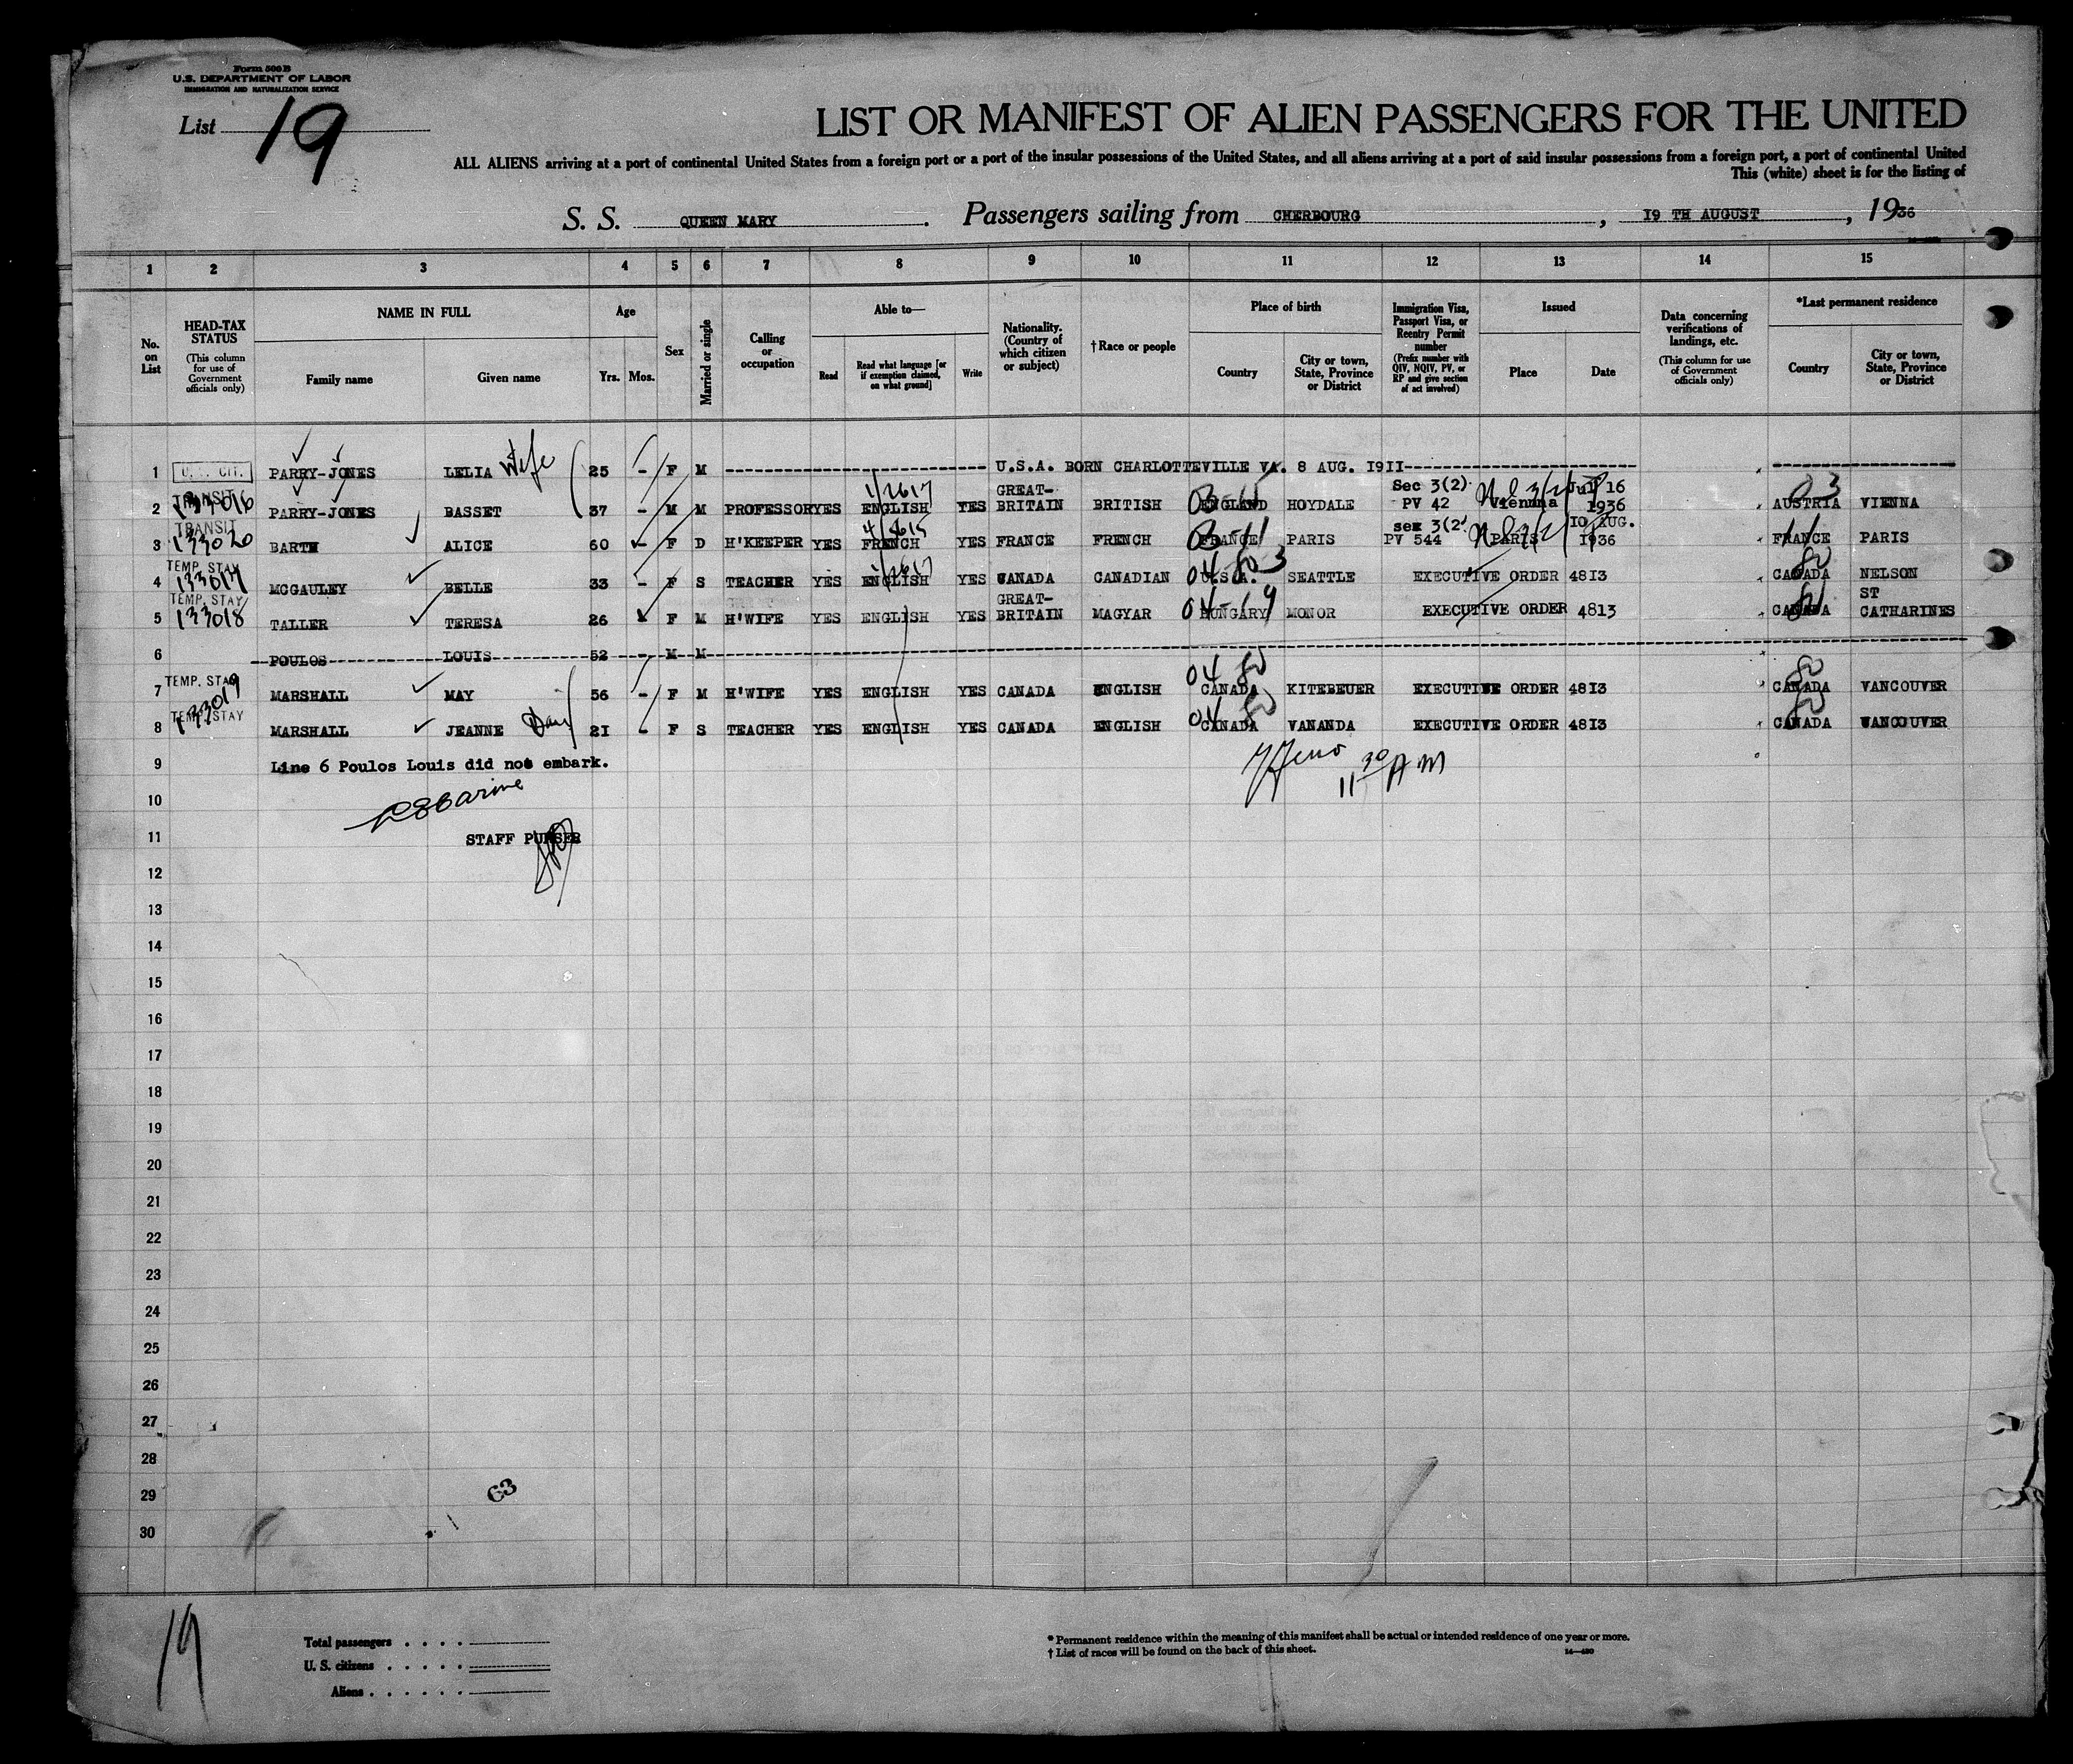 Form 500 B
U.S. DEPARTMENT OF LABOR
IMMIGRATION AND NATURALIZATION SERVICE
List 19
LIST OR MANIFEST OF ALIEN PASSENGERS FOR THE UNITED
ALL ALIENS arriving at a port of continental United States from a foreign port or a port of the insular possessions of the United States, and all aliens arriving at a port of said insular possessions from a foreign port, a port of continental United
This (white) sheet is for the listing of
S. S. QUEEN MARY. Passengers sailing from CHERBOURG, 19 TH AUGUST, 1936
1 2 3 4 5 6 7 8 9 10 11 12 13 14 15
No. on List
HEAD-TAX STATUS (This column for use of Government officials only)
NAME IN FULL
Family name
Given name
Age
Yrs. Mos.
Sex
Married or single
Calling or occupation
Able to—
Read
Read what language [or if exemption claimed, on what ground]
Write
Nationality. (Country of which citizen or subject)
†Race or people
Place of birth
Country
City or town, State, Province or District
Immigration Visa, Passport Visa, or Reentry Permit number (Prefix number with QIV, NQIV, PV, or RP and give section of act involved)
Issued
Place
Date
Data concerning verifications of landings, etc. (This column for use of Government officials only)
*Last permanent residence
Country
City or town, State, Province or District
1 U.S. CIT. PARRY-JONES LELIA Wife 25 - F M U.S.A. BORN CHARLOTTEVILLE VA. 8 AUG. 1911
2 TRANSIT 133016 PARRY-JONES BASSET 37 - M M PROFESSOR YES ENGLISH YES GREAT-BRITAIN BRITISH ENGLAND HOYDALE Sec 3(2) PV 42 Vienna Jul 16 1936 AUSTRIA VIENNA
3 TRANSIT 133020 BARTH ALICE 60 - F D H'KEEPER YES FRENCH YES FRANCE FRENCH FRANCE PARIS sex 3(2) PV 544 PARIS 10 AUG. 1936 FRANCE PARIS
4 TEMP. STAY 133017 MCGAULEY BELLE 33 - F S TEACHER YES ENGLISH YES CANADA CANADIAN U.S.A. SEATTLE EXECUTIVE ORDER 4813 CANADA NELSON
5 TEMP. STAY 133018 TALLER TERESA 26 F M H'WIFE YES ENGLISH YES GREAT-BRITAIN MAGYAR HUNGARY MONOR EXECUTIVE ORDER 4813 CANADA ST CATHARINES
6 POULOS LOUIS 52 - M M
7 TEMP. STAY 133019 MARSHALL MAY 56 - F M H'WIFE YES ENGLISH YES CANADA ENGLISH CANADA KITEBEUER EXECUTIVE ORDER 4813 CANADA VANCOUVER
8 TEMP. STAY MARSHALL JEANNE 21 - F S TEACHER YES ENGLISH YES CANADA ENGLISH CANADA VANANDA EXECUTIVE ORDER 4813 CANADA VANCOUVER
9 Line 6 Poulos Louis did not embark.
11 30 AM
10
11 STAFF PURSER
12
13
14
15
16
17
18
19
20
21
22
23
24
25
26
27
28
29 63
30
19
Total passengers
U. S. citizens
Aliens
* Permanent residence within the meaning of this manifest shall be actual or intended residence of one year or more.
† List of races will be found on the back of this sheet.